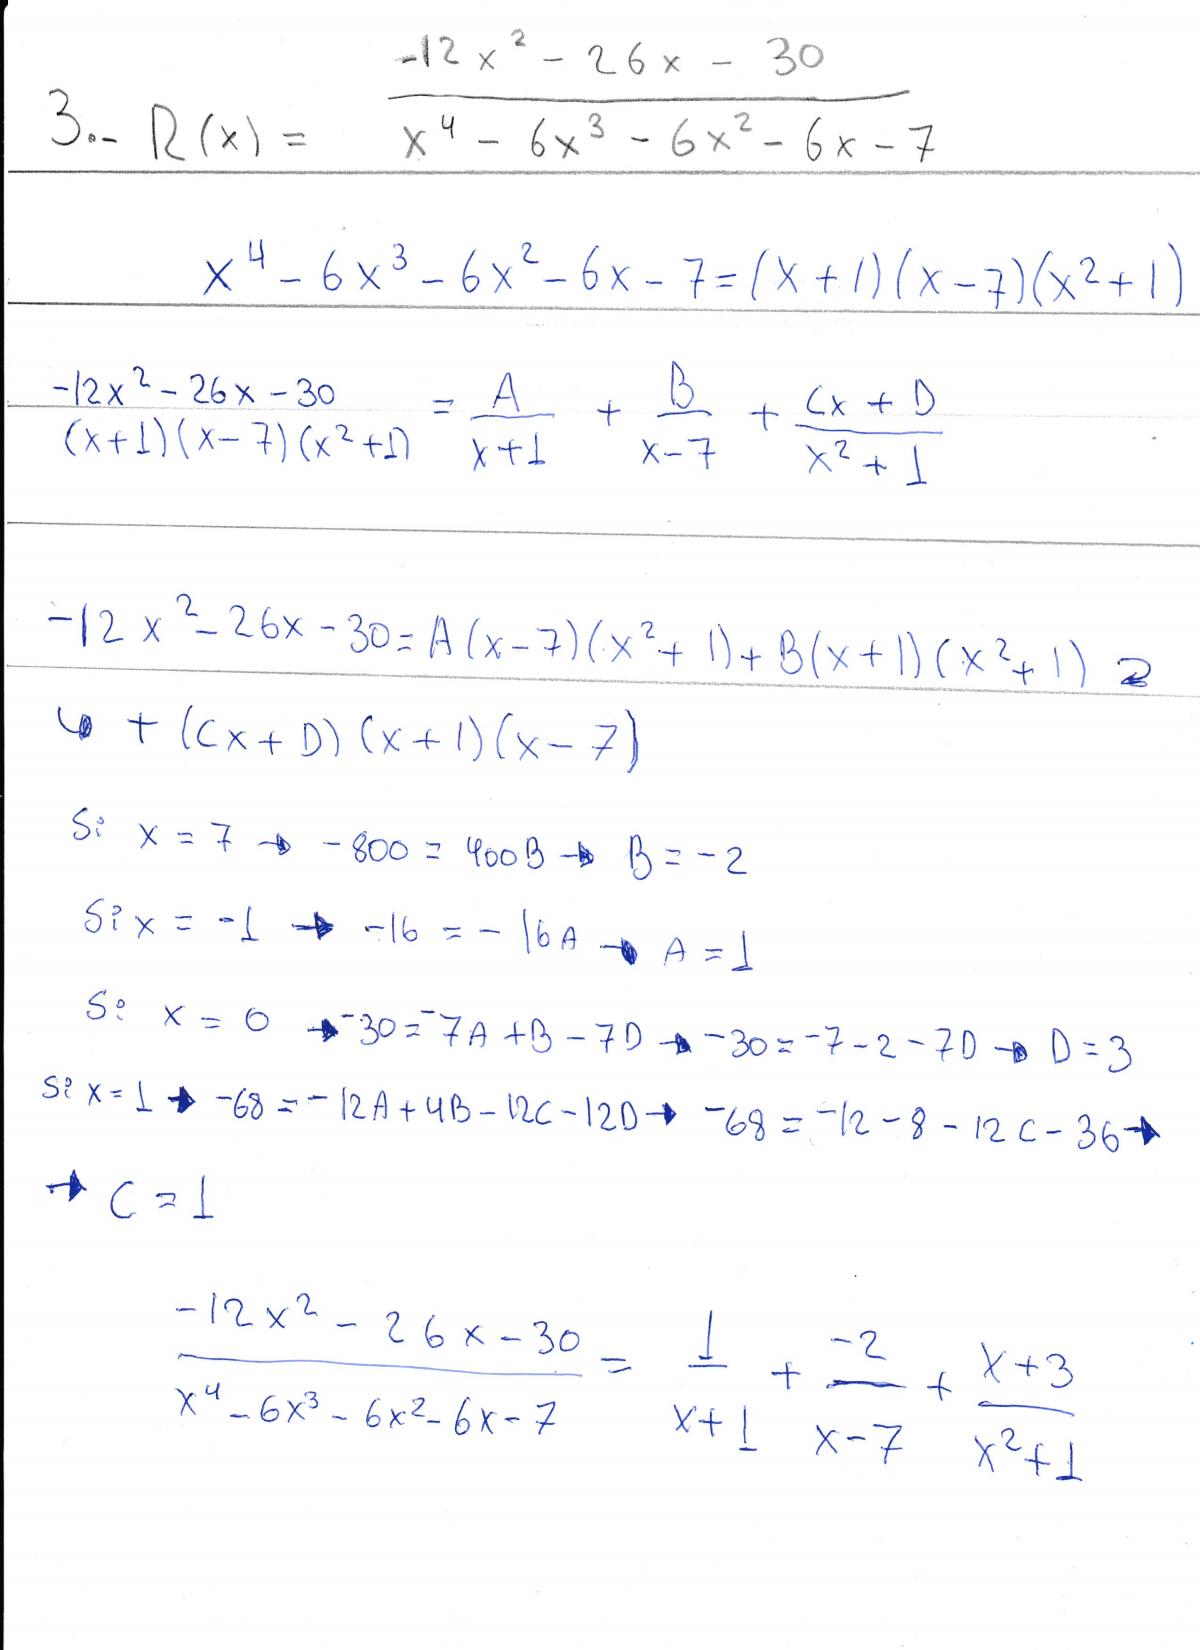 3.- R(x) = (-12x² - 26x - 30)/(x⁴ - 6x³ - 6x² - 6x - 7)
x⁴ - 6x³ - 6x² - 6x - 7 = (x+1)(x-7)(x²+1)
(-12x² - 26x - 30)/((x+1)(x-7)(x²+1)) = A/(x+1) + B/(x-7) + (Cx+D)/(x²+1)
-12x² - 26x - 30 = A(x-7)(x²+1) + B(x+1)(x²+1)
↳ + (Cx+D)(x+1)(x-7)
Si x = 7 → -800 = 400B → B = -2
Si x = -1 → -16 = -16A → A = 1
Si x = 0 → -30 = -7A + B - 7D → -30 = -7 - 2 - 7D → D = 3
Si x = 1 → -68 = -12A + 4B - 12C - 12D → -68 = -12 - 8 - 12C - 36 →
→ C = 1
(-12x² - 26x - 30)/(x⁴ - 6x³ - 6x² - 6x - 7) = 1/(x+1) + -2/(x-7) + (x+3)/(x²+1)